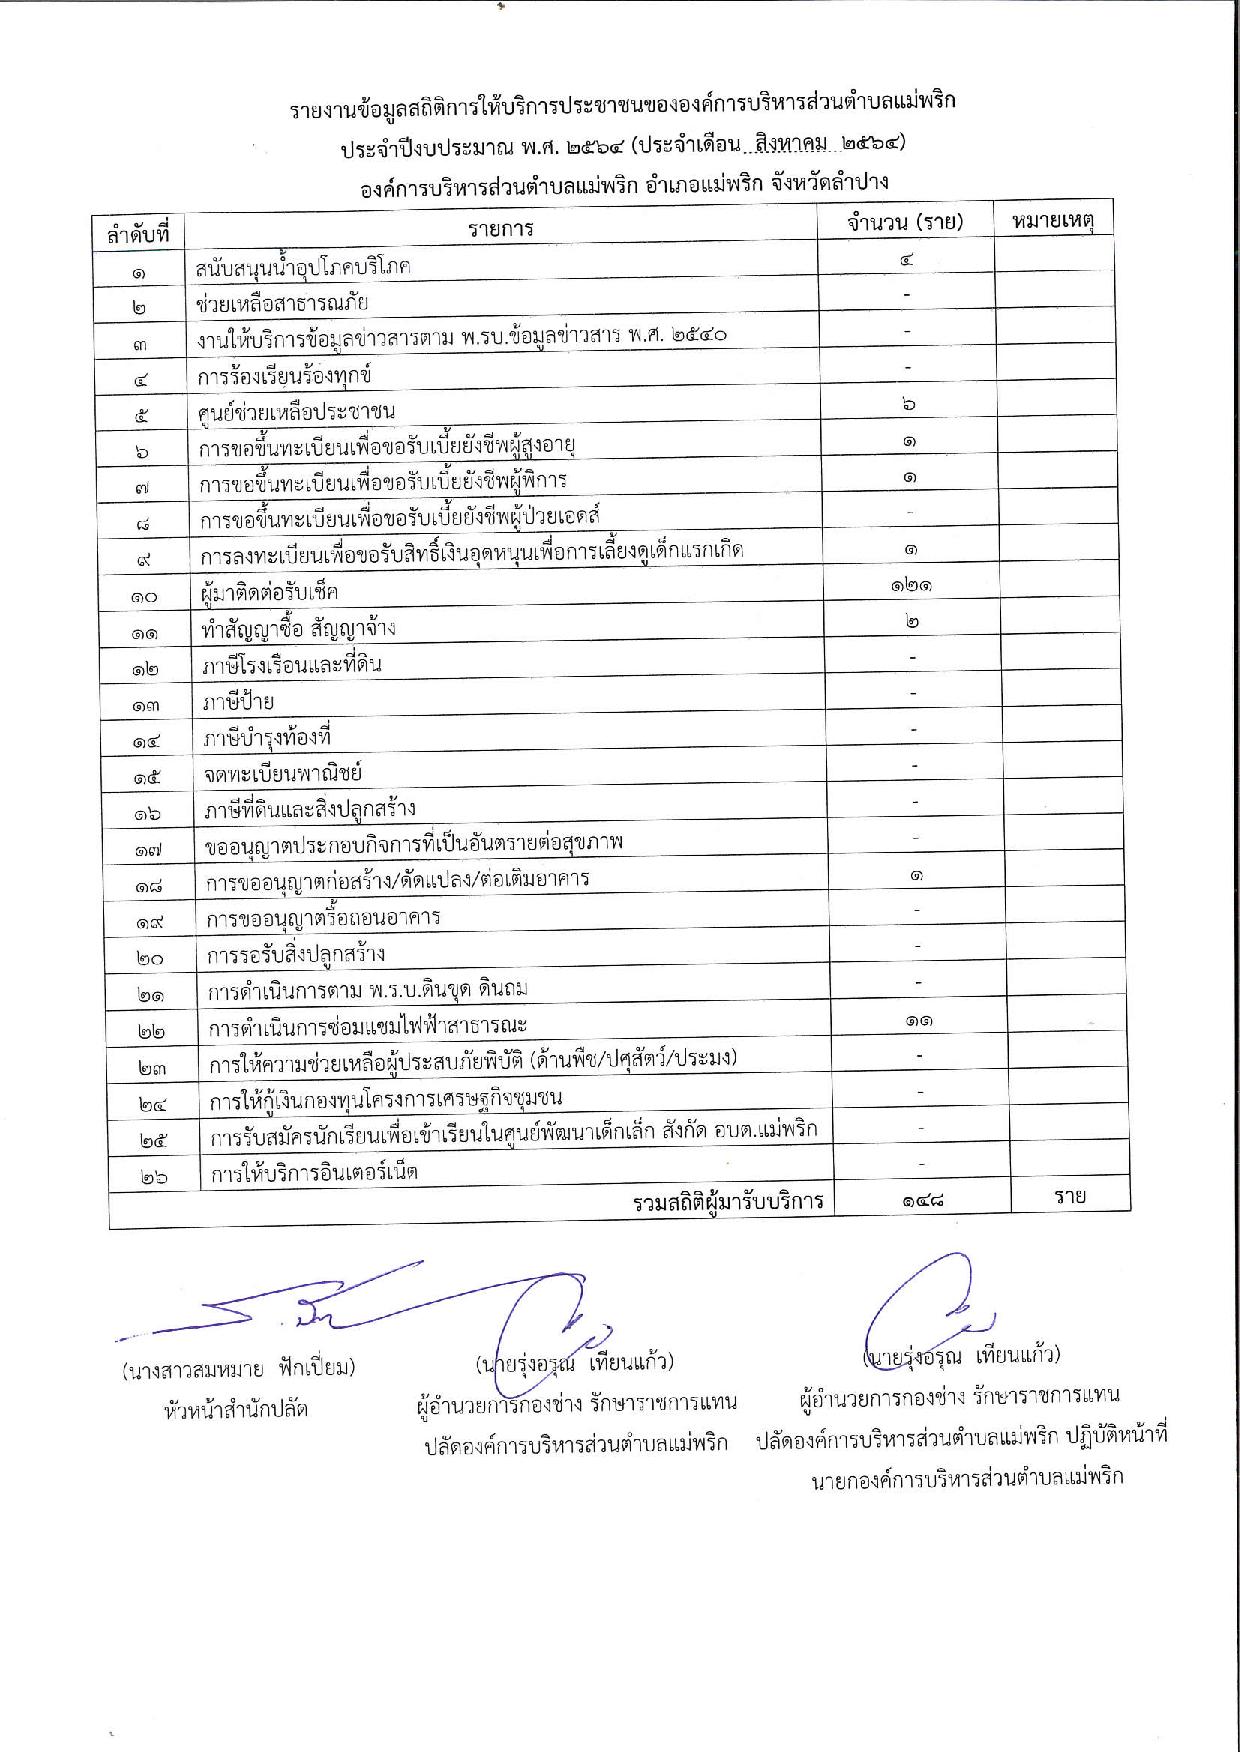 รายงานข้อมูลสถิติการให้บริการประชาชนขององค์การบริหารส่วนตำบลแม่พริก
ประจำปีงบประมาณ พ.ศ. ๒๕๖๔ (ประจำเดือน..สิงหาคม..๒๕๖๔)
องค์การบริหารส่วนตำบลแม่พริก อำเภอแม่พริก จังหวัดลำปาง
ลำดับที่ รายการ จำนวน (ราย) หมายเหตุ
๑ สนับสนุนน้ำอุปโภคบริโภค ๔
๒ ช่วยเหลือสาธารณภัย -
๓ งานให้บริการข้อมูลข่าวสารตาม พ.รบ.ข้อมูลข่าวสาร พ.ศ. ๒๕๔๐ -
๔ การร้องเรียนร้องทุกข์ -
๕ ศูนย์ช่วยเหลือประชาชน ๖
๖ การขอขึ้นทะเบียนเพื่อขอรับเบี้ยยังชีพผู้สูงอายุ ๑
๗ การขอขึ้นทะเบียนเพื่อขอรับเบี้ยยังชีพผู้พิการ ๑
๘ การขอขึ้นทะเบียนเพื่อขอรับเบี้ยยังชีพผู้ป่วยเอดส์ -
๙ การลงทะเบียนเพื่อขอรับสิทธิ์เงินอุดหนุนเพื่อการเลี้ยงดูเด็กแรกเกิด ๑
๑๐ ผู้มาติดต่อรับเช็ค ๑๒๑
๑๑ ทำสัญญาซื้อ สัญญาจ้าง ๒
๑๒ ภาษีโรงเรือนและที่ดิน -
๑๓ ภาษีป้าย -
๑๔ ภาษีบำรุงท้องที่ -
๑๕ จดทะเบียนพาณิชย์ -
๑๖ ภาษีที่ดินและสิ่งปลูกสร้าง -
๑๗ ขออนุญาตประกอบกิจการที่เป็นอันตรายต่อสุขภาพ -
๑๘ การขออนุญาตก่อสร้าง/ดัดแปลง/ต่อเติมอาคาร ๑
๑๙ การขออนุญาตรื้อถอนอาคาร -
๒๐ การรอรับสิ่งปลูกสร้าง -
๒๑ การดำเนินการตาม พ.ร.บ.ดินขุด ดินถม -
๒๒ การดำเนินการซ่อมแซมไฟฟ้าสาธารณะ ๑๑
๒๓ การให้ความช่วยเหลือผู้ประสบภัยพิบัติ (ด้านพืช/ปศุสัตว์/ประมง) -
๒๔ การให้กู้เงินกองทุนโครงการเศรษฐกิจชุมชน -
๒๕ การรับสมัครนักเรียนเพื่อเข้าเรียนในศูนย์พัฒนาเด็กเล็ก สังกัด อบต.แม่พริก -
๒๖ การให้บริการอินเตอร์เน็ต -
รวมสถิติผู้มารับบริการ ๑๔๘ ราย
(นางสาวสมหมาย ฟักเปี่ยม) (นายรุ่งอรุณ เทียนแก้ว) (นายรุ่งอรุณ เทียนแก้ว)
หัวหน้าสำนักปลัด ผู้อำนวยการกองช่าง รักษาราชการแทน ผู้อำนวยการกองช่าง รักษาราชการแทน
ปลัดองค์การบริหารส่วนตำบลแม่พริก ปลัดองค์การบริหารส่วนตำบลแม่พริก ปฏิบัติหน้าที่
นายกองค์การบริหารส่วนตำบลแม่พริก